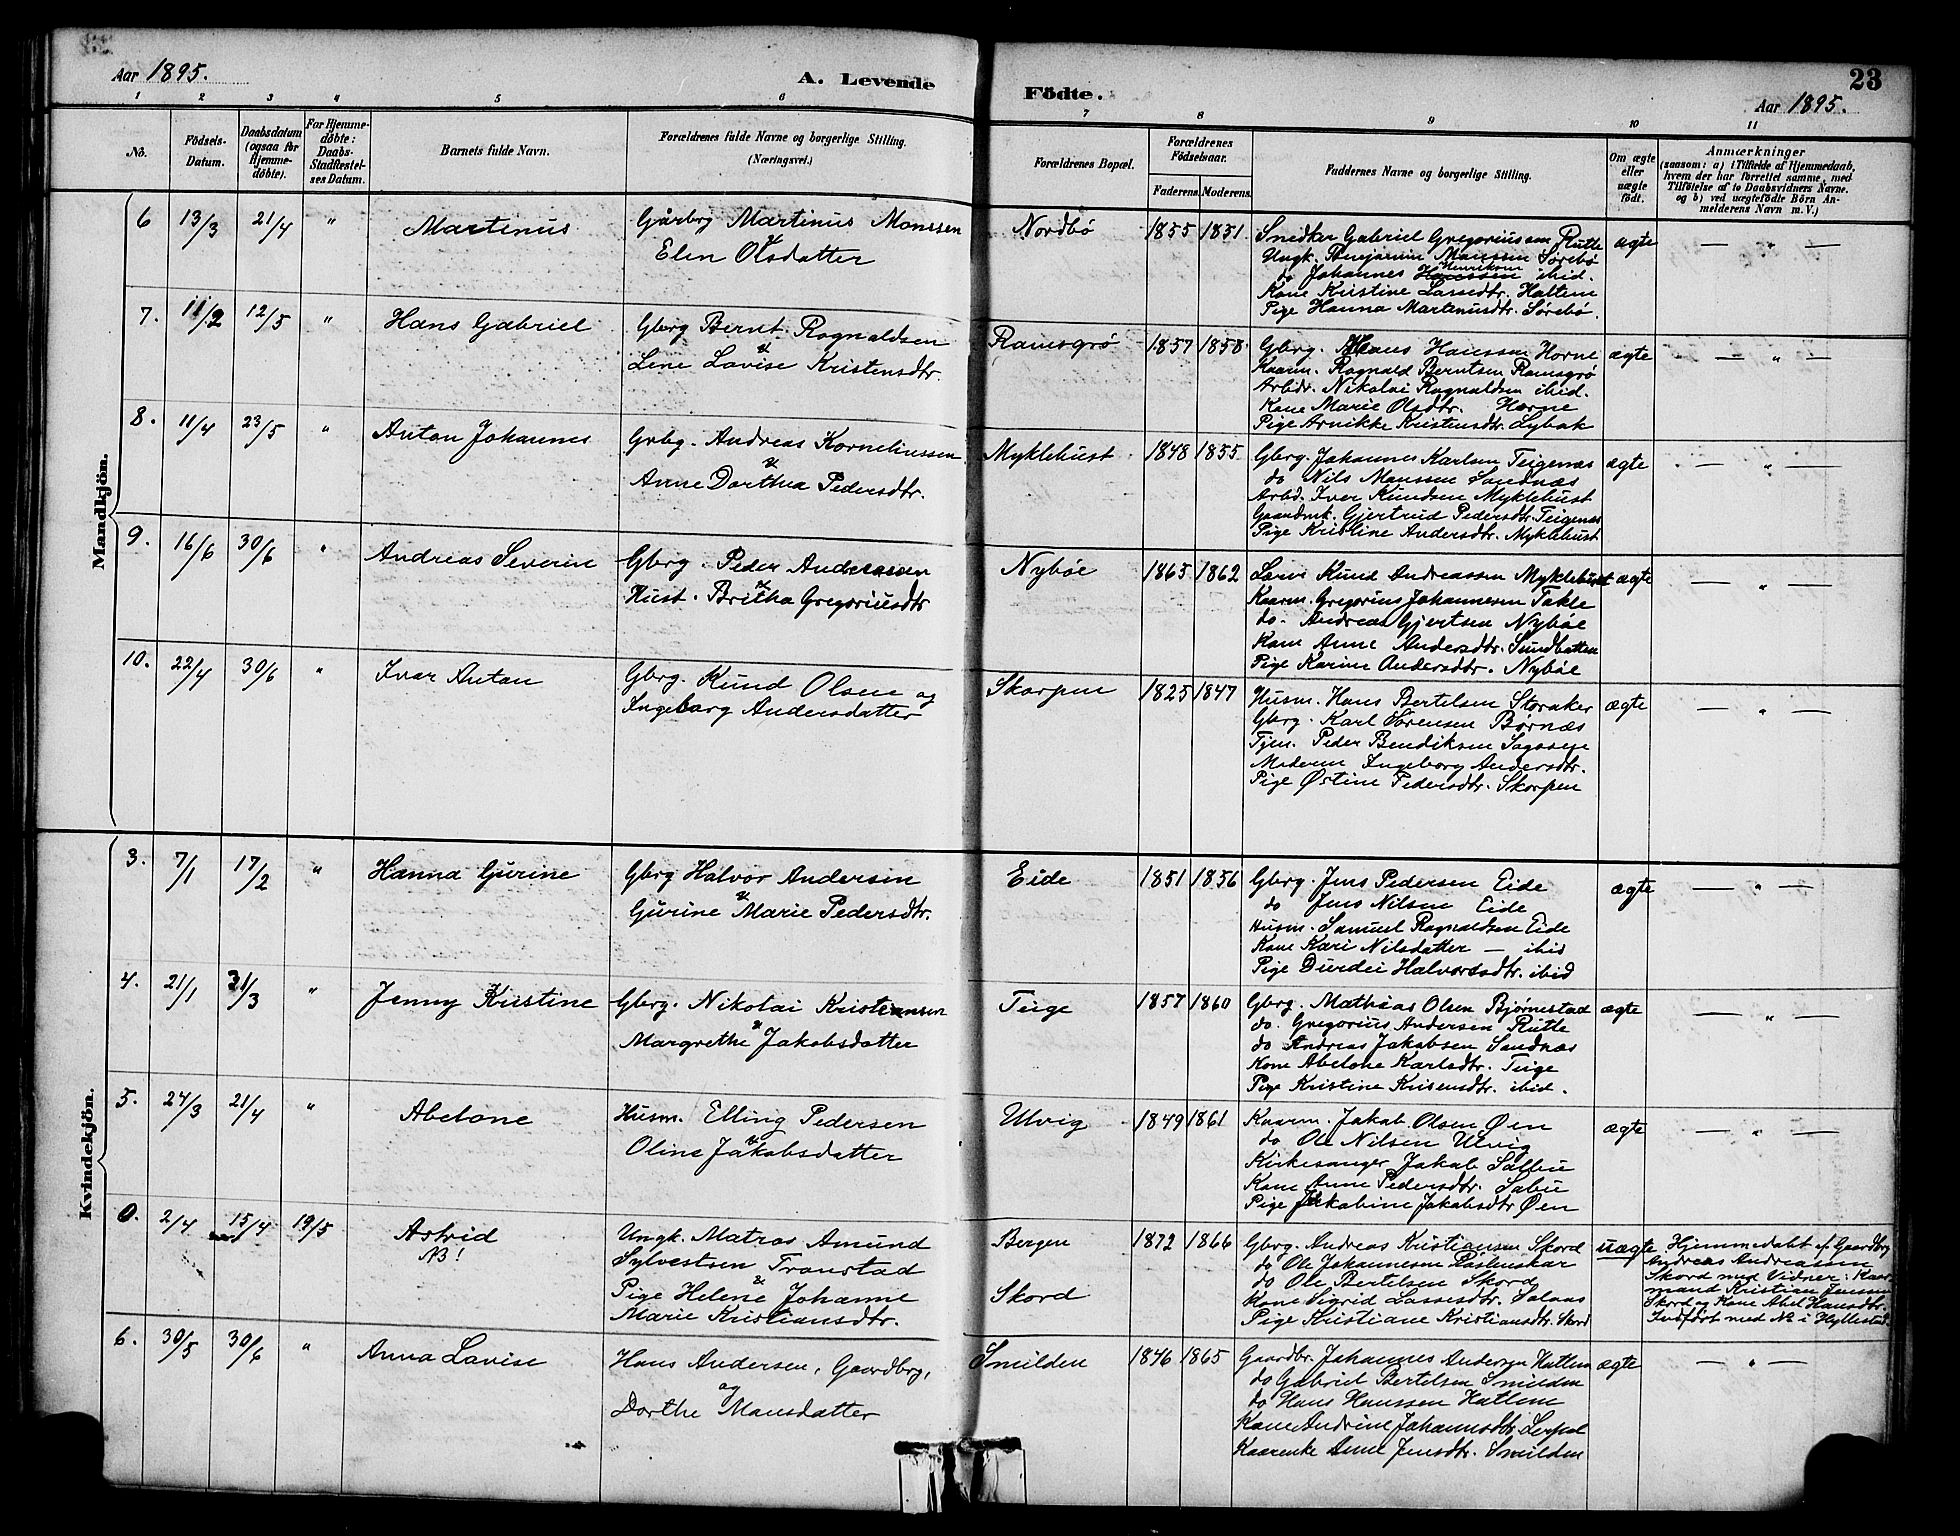 Aar 1895.
A. Levende
Födte.
23
Aar 1895.
1 2 3 4 5 6 7 8 9 10 11
No.
Födsels-
Datum.
Daabsdatum
(ogsaa for
Hjemme-
döbte).
For Hjemme-
döbte:
Daabs-
Stadfæstel-
ses Datum.
Barnets fulde Navn.
Forældrenes fulde Navne og borgerlige Stilling.
(Næringsvei.)
Forældrenes Bopæl.
Forældrenes
Födselsaar.
Faderens. Moderens.
Faddernes Navne og borgerlige Stilling.
Om ægte
eller
uægte
födt.
Anmærkninger
(saasom: a) i Tilfælde af Hjemmedaab,
hvem der har forrettet samme, med
Tilföielse af to Daabsvidners Navne.
og b) ved uægtefödte Börn An-
melderens Navn m. V.)
Mandkjön.
6 13/3 21/4 " Martinus
Gårbrg Martinus Monssen
&
Elen Olsdatter
Nordbö 1855 1851
Snedker Gabriel Gregoriussen Rutle
Ungk. Benjamin Monssen Sørebø
Henriksen
do Johannes Hanssen ibid.
Kone Kristine Lassedtr. Hatlem
Pige Hanna Martinusdtr. Sørebø.
ægte — " —
7. 11/2 12/5 " Hans Gabriel
Gbrg Bernt Ragnaldsen
&
Lene Lavise Kristensdtr.
Ramsgrø 1857 1858
Gbrg. Hans Hanssen Horne
Kaarm. Ragnald Berntsen Ramsgrø
Arbdr. Nikolai Ragnaldsen ibid.
Kone Marie Olsdtr. Horne
Pige Arnikke Kristensdtr. Lybak
ægte — " —
8. 11/4 23/5 " Anton Johannes
Grbg. Andreas Korneliussen
&
Anne Dorthea Pedersdtr.
Myklebust 1848 1855
Gbrg. Johannes Karlsen Teigenæs
do Nils Monssen Sandnæs
Arbd. Iver Knudsen Myklebust
Gaardmk. Gjertrud Pedersdtr. Teigenæs
Pige Kristine Andersdtr. Myklebust
ægte — " —
9. 16/6 30/6 " Andreas Severin
Gbrg. Peder Anderssen
&
Hust. Britha Gregoriusdtr
Nybøe 1865 1862
Knud Andreassen Myklebust
Kaarm. Gregorius Johannesen Takle
do. Andreas Gjertsen Nybøe
Kone Anne Andersdtr. Sundbotten
Pige Karine Andersdtr. Nybøe
ægte — " —
10. 22/4 30/6 " Ivar Anton
Gbrg. Knud Olsen og
Ingeborg Andersdatter
Skorpen 1825 1847
Husm. Hans Bertelsen Storaker
Gbrg. Karl Sørensen Børnæs
Tjen. Peder Bendiksen
Moderen Ingeborg Andersdtr.
Pige Østine Pedersdtr. Skorpen
ægte — " —
Kvindekjön.
3. 7/1 17/2 " Hanna Gurine
Gbrg Halvor Andersen
&
Gurine Marie Pedersdtr.
Eide 1851 1856
Gbrg. Jens Pedersen Eide
do Jens Nilsen Eide
Husm. Samuel Ragnaldsen Eide
Kone Kari Nilsdatter — ibid
Pige Durdei Halvorsdtr. ibid
ægte — " —
4. 21/1 21/3 " Jenny Kristine
Gbrg. Nikolai Kristiansen
&
Margrethe Jakobsdatter
Teige 1857 1860
Gbrg. Mathias Olsen Bjørnestad
do. Gregorius Andersen Rutle
do Andreas Jakobsen Sandnæs
Kone Abelone Karlsdtr. Teige
Pige Kristine ibid.
ægte — " —
5. 24/3 21/4 " Abelone
Husm. Elling Pedersen
&
Oline Jakobsdatter
Ulvig 1849 1861
Kaarm. Jakob Olsen Øen
do Ole Nilsen Ulvig
Kirkesanger Jakob Salbu
Kone Anne Pedersdtr. Salbu
Pige Jakobine Jakobsdtr Øen
ægte — " —
0. 2/4 15/4 19/5 Astrid
NB!
Ungk. Matros Amund
Sylvestsen Transtad
&
Pige Helene Johanne
Marie Kristiansdtr.
Bergen
Skord
1872 1866
Gbrg. Andreas Kristiansen Skord
do Ole Johannesen
do Ole Bertelsen Skord
Kone Sigrid Lassesdtr. Solaas
Pige Kristiane Kristiansdtr. Skord
uægte
Hjemmedøbt af Gaardbrg
Andreas Andreassen
Skord med Vidner: Kaar-
mand Kristian Jenssen
Skord og Kone Abel Hansdtr.
Indført med No i Hyllestad
6. 30/5 30/6 " Anna Lavise
Hans Andersen, Gaardbrg,
og
Dorthe Monsdatter
Smilden 1846 1865
Gaardbr. Johannes Andersen Hatlem
do Gabriel Bertelsen Smilden
do Hans Hanssen Hatlem
Kone Andrine Johannesdtr
Kaarenke Anne Jensdtr. Smilden
ægte — " —